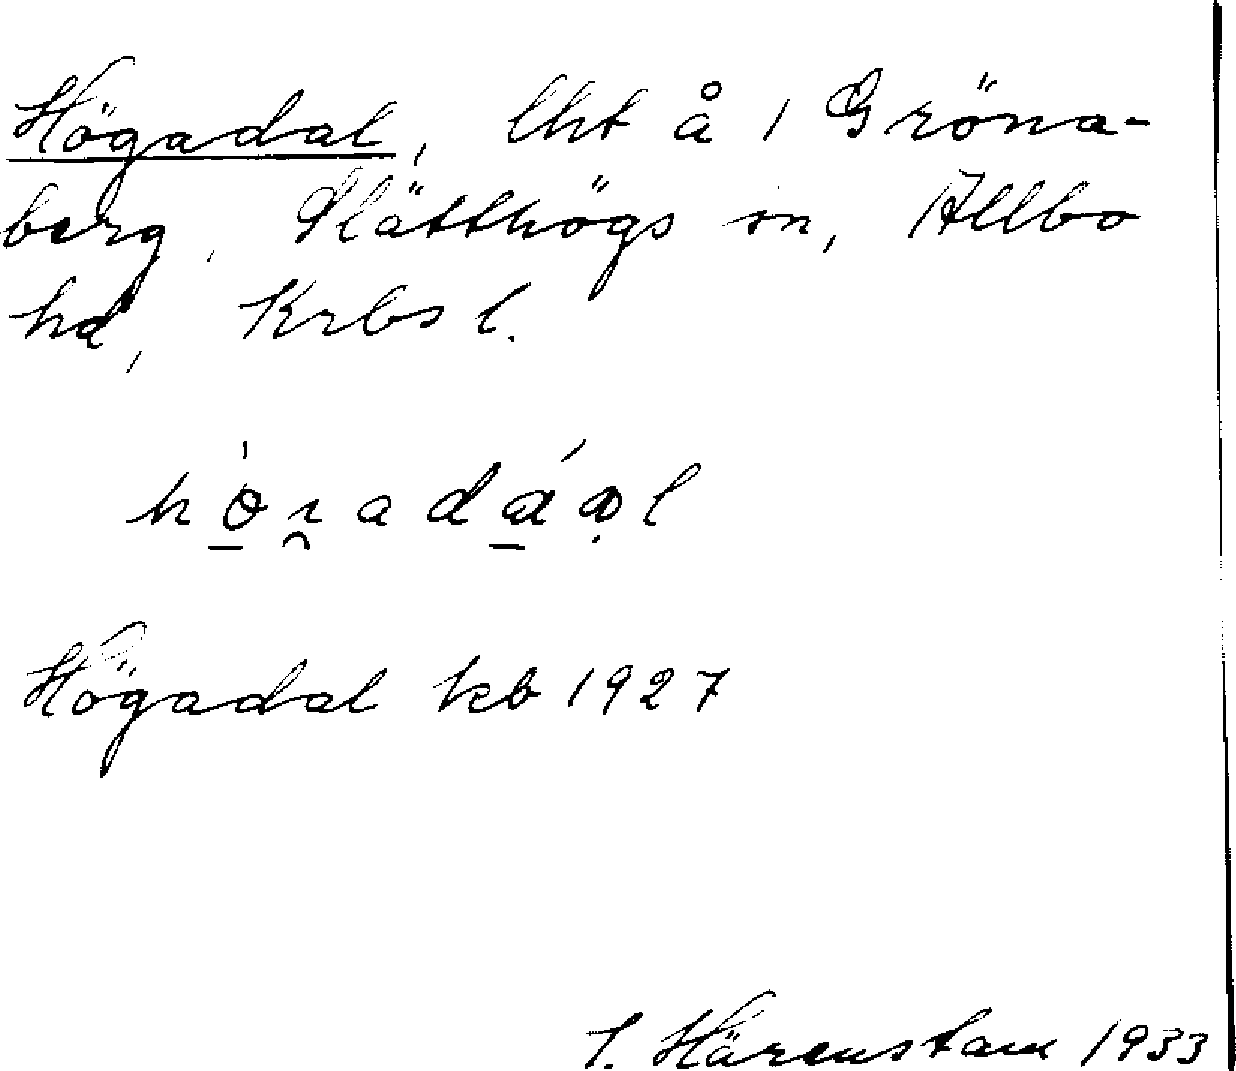 Högadal, lht å 1 Gröna-
berg, Slätthögs sn, Allbo
hd, Krbs l.
Högadal kb 1927
I. Härenstam 1933